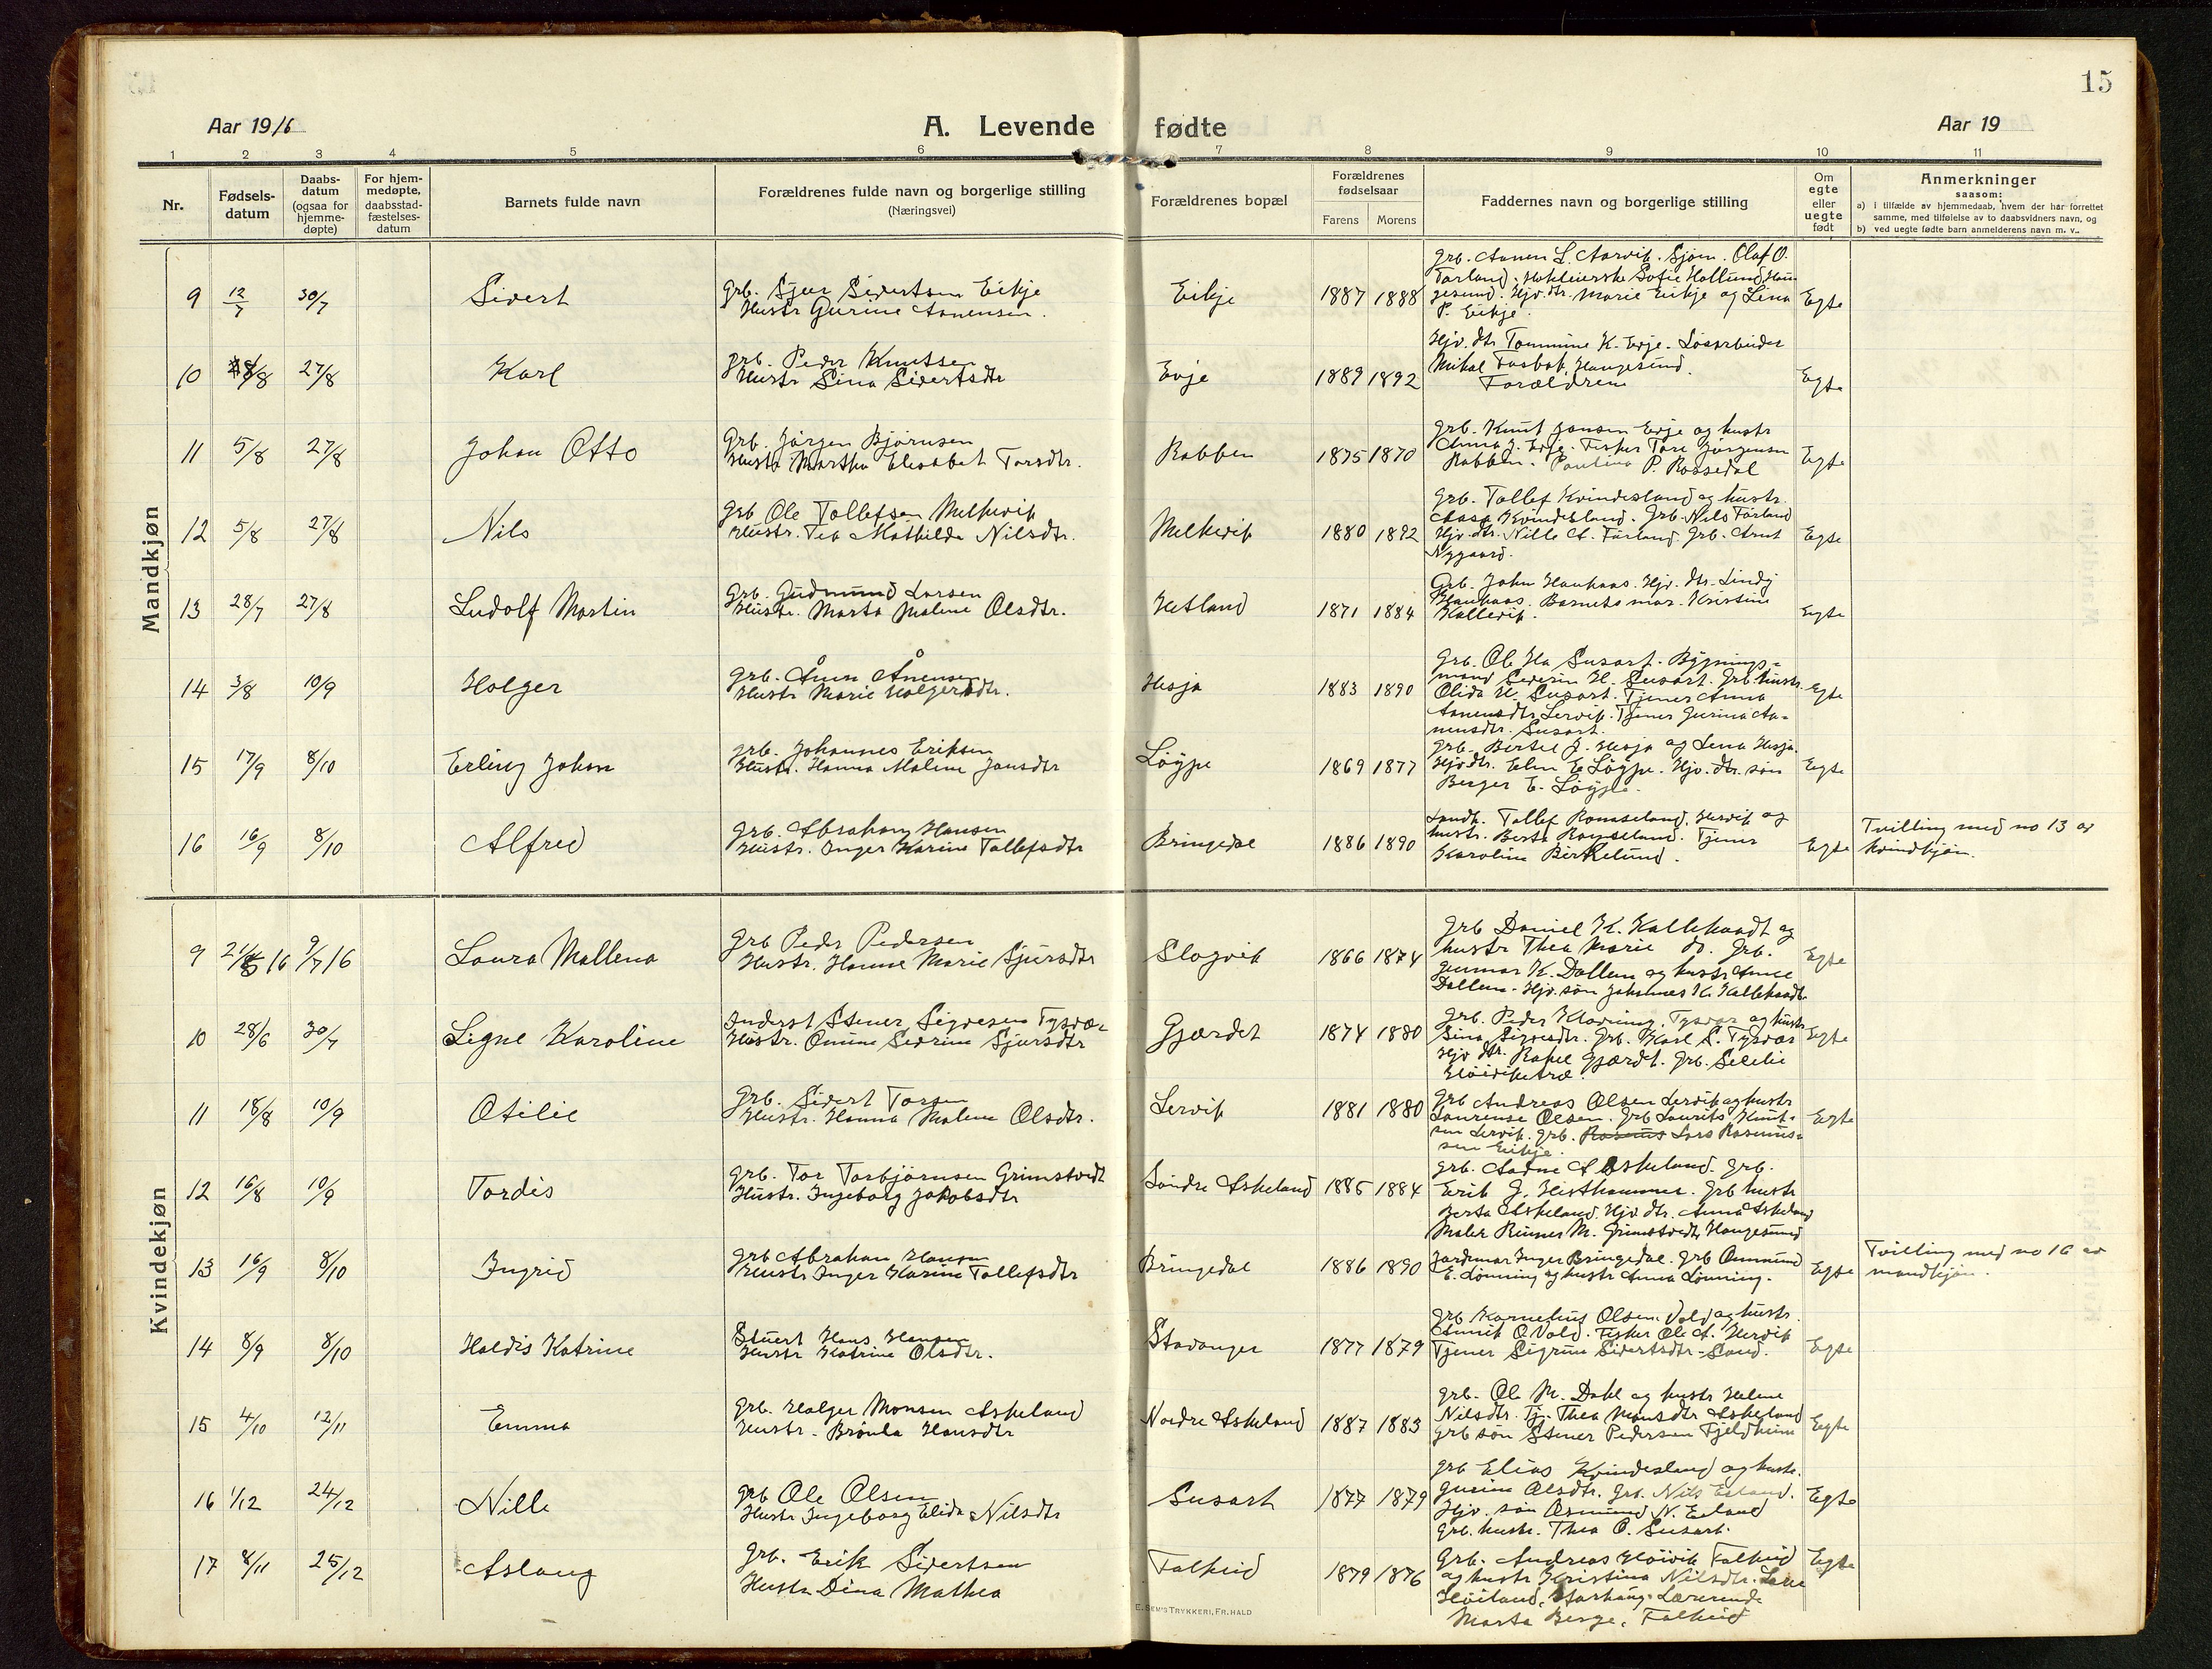 15
Aar 1916
A. Levende fødte
Aar 19
1 2 3 4 5 6 7 8 9 10 11
Nr.
Fødsels-
datum
Daabs-
datum
(ogsaa for
hjemme-
døpte)
For hjem-
medøpte,
daabsstad-
fæstelses-
datum
Barnets fulde navn
Forældrenes fulde navn og borgerlige stilling
(Næringsvei)
Forældrenes bopæl
Forældrenes
fødselsaar
Farens Morens
Faddernes navn og borgerlige stilling
Om
egte
eller
uegte
født
Anmerkninger
saasom:
a) i tilfælde av hjemmedaab, hvem der har forrettet
samme, med tilføielse av to daabsvidners navn, og
b) ved uegte fødte barn anmelderens navn m. v..
Mandkjøn
9 12/7 30/7 Sivert
Grb. Sjur Sivertsen Eikje
Hustr Gurine Aanensen.
Eikje 1887 1888
Grb. Aanen L. Aarvik. Sjøm. Olaf O.
Førland. Sofie Hallund, Hau-
gesund. Hjv. dtr. Marie Eikje og Lina
P. Eikje.
Egte
10 /8 27/8 Karl
grb. Peder Knutsen
Hustr Sina Sivertsdtr
Evje 1889 1892
Hjv. dtr Tommine K. Evje. Løsarbeider
Mikal Fosbak, Haugesund.
Forældrene
Egte
11 5/8 27/8 Johan Otto
Grb. Jörgen Bjørnsen
Hustr Martha Elisabet Torsdtr.
Rabben 1875 1870
Grb. Knut Jonsen Evje og hustr
Anna J. Evje. Fisker Tore Jørgensen
Rabben. Pauline P. Rossedal
Egte
12 5/8 27/8 Nils
Grb Ole Tollefsen Melkevik
Hustr. Tea Mathilde Nilsdtr.
Melkevik 1880 1892
Grb. Tollef Kvindesland og hustr.
Aasa Kvindesland. Grb. Nils Førland
Hjv. dtr. Nille A. Førland. Grb. Arnt
Nygaard.
Egte
13 28/7 27/8 Ludolf Martin
Grb. Gudmund Larsen
Hustr. Marta Malene Olsdtr.
Hetland 1871 1884
Grb. John Haukaas. Hjv. dtr. Lindy
Haukaas. Barnets mor. Kristine
Kallevik.
Egte
14 3/8 10/9 Holger
Grb. Ånen Ånensen
Hustr Marie Holgersdtr.
Hesja 1883 1890
Grb. Ole Ha Susart. Bygnings-
mand Severin H. Susart. Grb. hustr
Olida H. Susart. Tjener Anna
Aanensdtr Lervik. Tjener Gurina Aa-
nensdtr. Susart.
Egte
15 17/9 8/10 Erling Johan
grb. Johannes Eriksen
Hustr. Hanna Malene Jonsdtr
Løype 1869 1877
Grb. Bertel J. Hesja og Lena Hesja.
Hjv. dtr. Elen E. Løype. Hjv. søn
Berger E. Løype.
Egte
16 16/9 8/10 Alfred
Grb. Abraham Hansen
Hustr. Inger Karine Tollefsdtr
Bringedal 1886 1890
Landh. Tollef Rønseland, Hervik og
hustr. Berta Rønseland. Tjener
Karoline Birkelund.
Egte
Tvilling med no 13 av
kvindkjøn.
Kvindekjøn
9 21/5 16 9/7 16 Laura Mallena
Grb Peder Pedersen
Hustr. Hanne Marie Sjursdtr
Slogvik 1866 1874
Grb Daniel K. Kallekodt og
hustr Thea Marie do. Grb.
Gunnar K. Dallen og hustr Anne
Dallen. Hjv. søn Johannes K. Kallekodt
Egte
10 28/6 30/7 Signe Karoline
Inderst Stener Sigvesen Tysvær
Hustr. Omine Severine Sjursdtr
Gjærdet 1874 1880
Grb. Peder Klovning, Tysvær og hustr
Sina Sigvesdtr. Grb. Karl S. Tysvær
Hjv dtr. Rakel Gjærdet. Grb. Selelie
Høiviktræ.
Egte
11 18/8 10/9 Otilie
Grb. Sivert Torsen
Hustr. Hanna Malene Olsdtr.
Lervik 1881 1880
Grb Andreas Olsen Lervik og hustr
Laurense Olsen. Grb Laurits Knut-
sen Lervik. Grb. Rasmus Lars Rasmus-
sen Eikje.
Egte
12 16/8 10/9 Tordis
Grb. Tor Torbjørnsen Grimstvedt
Hustr. Ingeborg Jakobsdtr
Söndre Askeland 1885 1884
Grb. Aadne A Askeland. Grb.
Erik J. Hesthammer. Grb hustr
Berta Askeland. Hjv. dtr. Anna Askeland
Maler Rinner M. Grimstvedt, Haugesund
13 16/9 8/10 Ingrid
Grb Abraham Hansen
Hustr Inger Karine Tollefsdtr
Bringedal 1886 1890
Jordmor Inger Bringedal. Grb Ommund
E. Lønning og hustr Anna Lønning.
Egte
Tvilling med no 16 av
mandkjøn.
14 8/9 8/10 Haldis Katrine
Stuert Hans Hansen
Hustr Katrine Olsdtr.
Stavanger 1877 1879
Grb Karnelius Olsen Vold og hustr.
Annik O Vold. Fisker Ole A. Hervik
Tjener Sigrun Sivertsdtr Sand.
Egte
15 4/10 12/11 Emma
Grb. Holger Monsen Askeland
Hustr. Brønla Hansdtr
Nordre Askeland 1887 1883
Grb. Ole M. Dahl og hustr Helene
Nilsdtr. Tj. Thea Monsdtr Askeland
Grb søn Stener Pedersen Fjeldheim
Egte
16 1/12 24/12 Nille
Grb Ole Olsen
Hustr Ingeborg Elida Nilsdtr
Susart 1877 1879
Grb Elias Kvindesland og hustr.
Gurine Olsdtr. Grb. Nils Eeland.
Hjv. søn Osmund N. Eeland
Grb. hustr. Thea O. Susart.
Egte
17 8/11 25/12 Aslaug
Grb. Erik Sivertsen
Hustr Dina Mathea
Falkeid 1879 1876
Grb. Andreas Høivik Falkeid
og hustr Kristina Nilsdtr. Lars
Høiland, Aarhaug. Lærerinde
Marta Berge, Falkeid
Egte
E. SEM'S TRYKKERI, FR.HALD